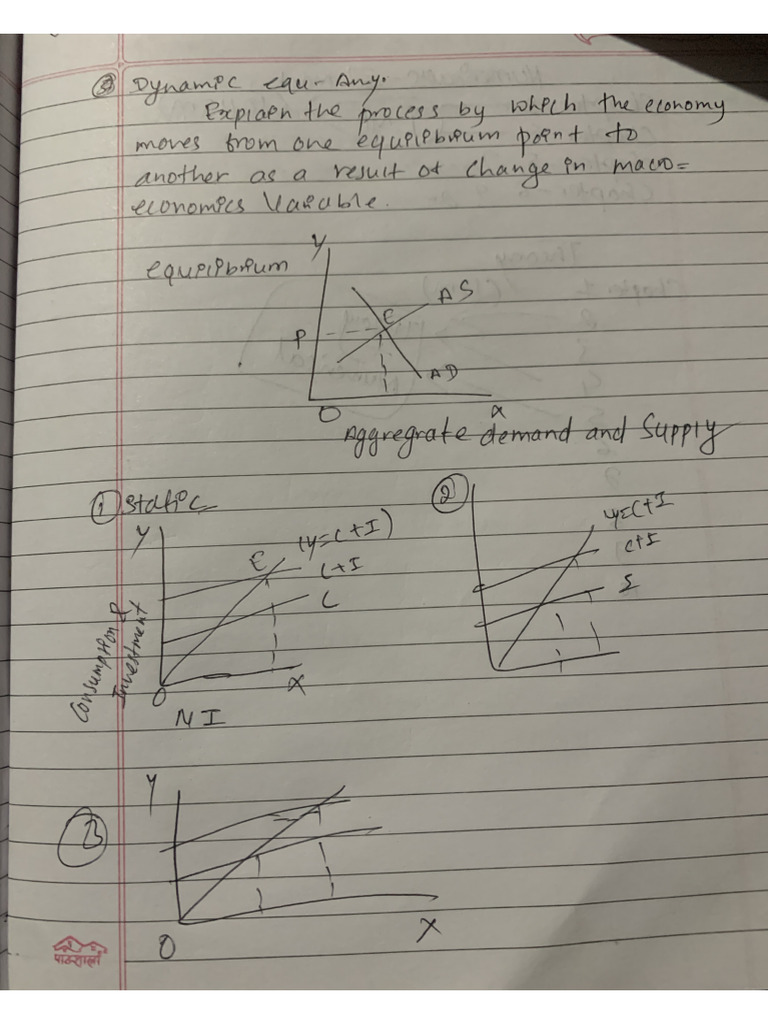 ③ Dynamic equ- Any.
Explaen the process by which the economy
moves from one equilibrium point to
another as a result of change in macro=
economics Variable.
equilibrium
Y
AS
E
P
AD
O
x
Aggregrate demand and Supply
① Static
②
Y
(Y=C+I)
E
C+I
C
Consumption &
Investment
O
X
NI
Y=C+I
C+I
Σ
Y
③
O
X
पाठशाला